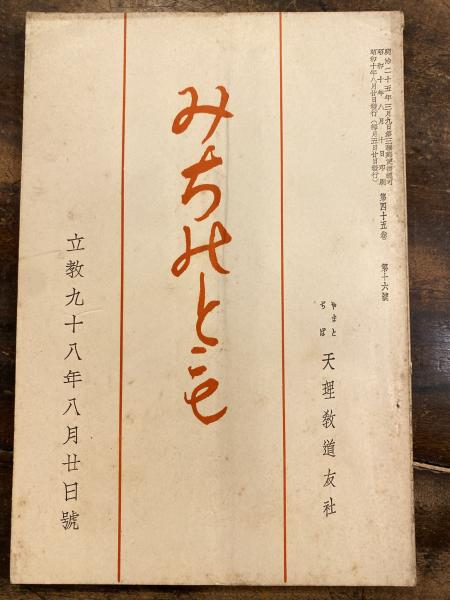 明治二十五年三月九日第三種郵便物認可
昭和十年八月十日印刷
昭和十年八月廿日發行(毎月五日廿日發行)
第四十五卷
第十六號
やまと
ちば
天理教道友社
みちのとも
立教九十八年八月廿日號